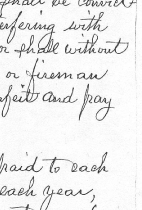 shall be convict
erfering with
or shall without
or fireman
nfeit and pay
paid to each
each year,